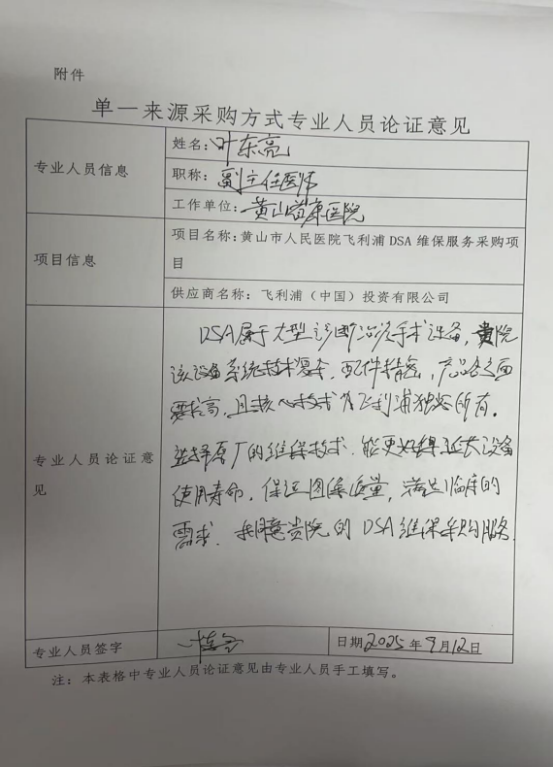 附件
单一来源采购方式专业人员论证意见
专业人员信息
姓名:叶东亮
职称:副主任医师
工作单位:黄山首康医院
项目信息
项目名称:黄山市人民医院飞利浦DSA维保服务采购项
目
供应商名称:飞利浦(中国)投资有限公司
专业人员论证意
见
DSA属于大型诊断治疗手术设备,贵院
该设备系统技术复杂,配件精密,产品
要求高,且核心技术为飞利浦独家所有。
选择原厂的维保技术,能更好得延长设备
使用寿命,保证图像质量,满足临床的
需求,我同意贵院的DSA维保采购服务.
专业人员签字
日期2025年9月12日
注:本表格中专业人员论证意见由专业人员手工填写。